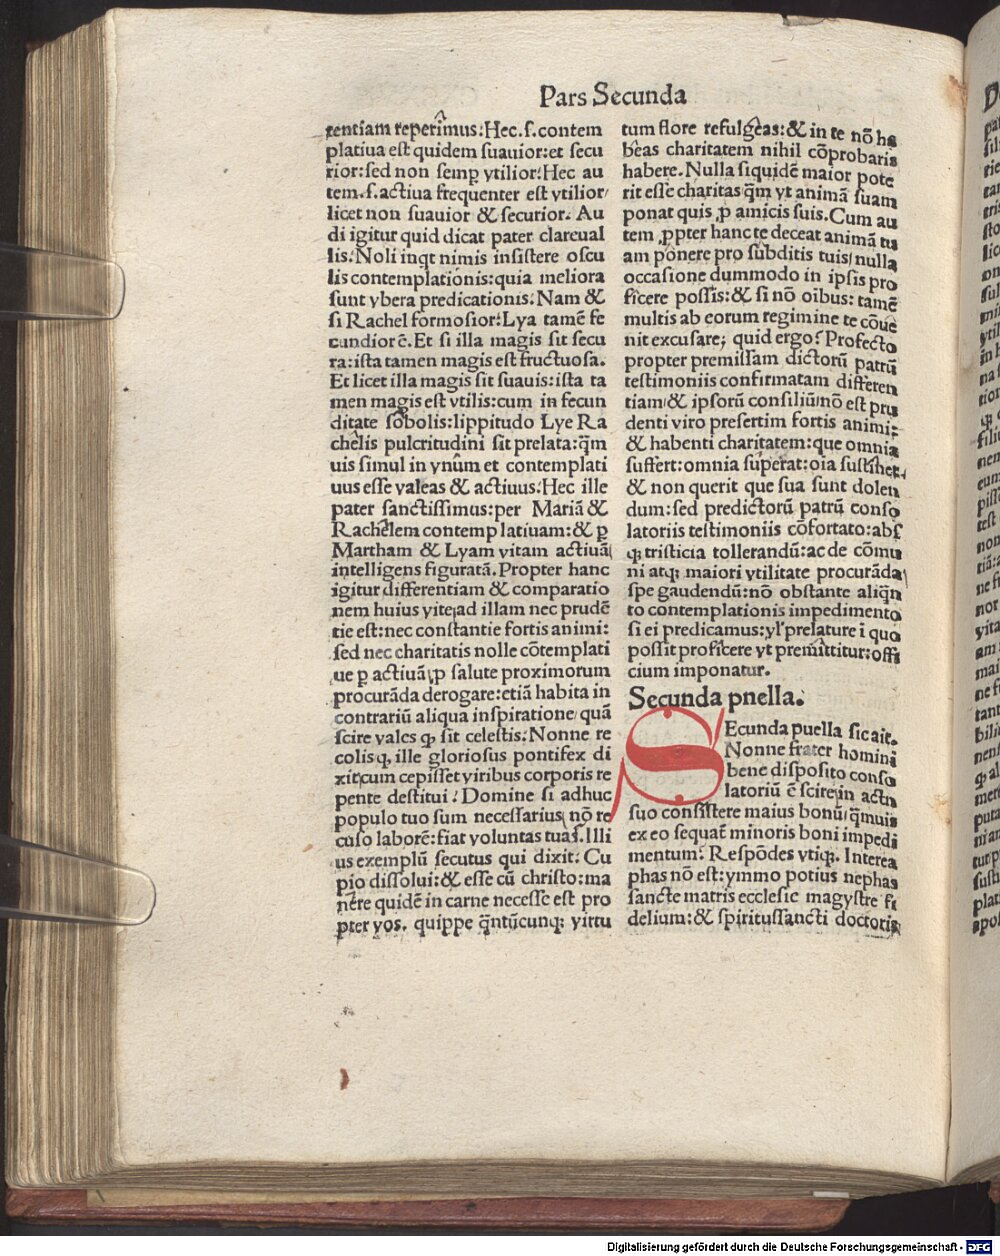 Pars Secunda
tentiam reperimus: Hec .s. contem
platiua est quidem suauior: et secu
rior: sed non semꝑ vtilior. Hec au
tem .s. actiua frequenter est vtilior
licet non suauior & securior. Au
di igitur quid dicat pater clareual
lis. Noli inqt nimis insistere oscu
lis contemplationis: quia meliora
sunt vbera predicationis. Nam &
si Rachel formosior: Lya tamē fe
cundior ē. Et si illa magis sit secu
ra: ista tamen magis est fructuosa.
Et licet illa magis sit suauis: ista ta
men magis est vtilis: cum in fecun
ditate sobolis: lippitudo Lye Ra
chelis pulcritudini sit prelata: q̄m
uis simul in vnum et contemplati
uus esse valeas & actiuus. Hec ille
pater sanctissimus: per Mariā &
Rachelem contemplatiuam: & ꝑ
Martham & Lyam vitam actiuā
intelligens figuratā. Propter hanc
igitur differentiam & comparatio
nem huius vite ad illam nec prudē
tie est: nec constantie fortis animi:
sed nec charitatis nolle cōtemplati
ue ꝑ actiuā ꝓ salute proximorum
procurāda derogare: etiā habita in
contrariū aliqua inspiratione/ quā
scire vales ꝙ sit celestis. Nonne re
colis ꝙ ille gloriosus pontifex di
xit: cum cepisset viribus corporis re
pente destitui? Domine si adhuc
populo tuo sum necessarius/ nō re
cuso laborē: fiat voluntas tua. Illi
us exemplū secutus qui dixit. Cu
pio dissolui: & esse cū christo: ma
nere quidē in carne necesse est pro
pter vos. quippe q̄ntūcunqꝫ virtu
tum flore refulgeas: & in te nō ha
beas charitatem nihil cōprobaris
habere. Nulla siquidē maior pote
rit esse charitas q̄m vt animā suam
ponat quis ꝓ amicis suis. Cum au
tem ꝓpter hanc te deceat animā tu
am ponere pro subditis tuis/ nulla
occasione dummodo in ipsis pro
ficere possis: & si nō oībus: tamē
multis ab eorum regimine te cōue
nit excusare; quid ergo? Profecto
propter premissam dictorū patrū
testimoniis confirmatam differen
tiam/ & ipsorū consiliū/ nō est pru
denti viro presertim fortis animi:
& habenti charitatem: que omnia
suffert: omnia superat: oīa sustinet.
& non querit que sua sunt dolen
dum: sed predictorū patrū conso
latoriis testimoniis cōfortato: abs
qꝫ tristicia tollerandū: ac de cōmu
ni atqꝫ maiori vtilitate procurāda
spe gaudendū: nō obstante aliq̄n
to contemplationis impedimento
si ei predicamus: vl' prelature ī quo
possit proficere vt premittitur: offi
cium imponatur.
Secunda pnella.
SEcunda puella sic ait.
Nonne frater homini
bene disposito conso
latoriū ē scire/ in actu
suo consistere maius bonū/ q̄muis
ex eo sequat̄ minoris boni impedi
mentum? Respōdes vtiqꝫ. Interea
phas nō est: ymmo potius nephas
sancte matris ecclesie magystre fi
delium: & spiritussancti doctoris
Digitalisierung gefördert durch die Deutsche Forschungsgemeinschaft - DFG